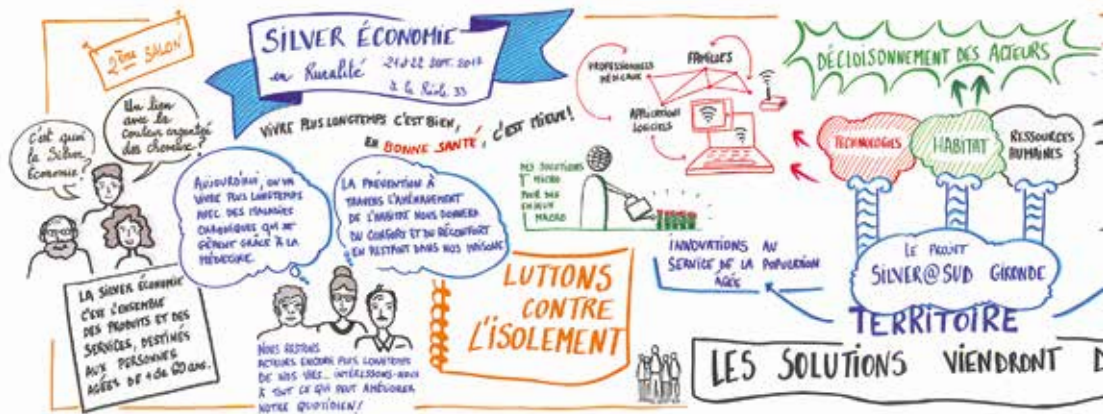 2ème SALON
SILVER ÉCONOMIE
en Ruralité
21 & 22 SEPT. 2017
à la Réole 33
c'est quoi
la Silver
Économie?
Un lien
avec la
couleur argentée
des cheveux?
VIVRE PLUS LONGTEMPS C'EST BIEN,
EN BONNE SANTÉ, C'EST MIEUX!
AUJOURD'HUI, ON VA
VIVRE PLUS LONGTEMPS
AVEC DES MALADIES
CHRONIQUES QUI SE
GÈRENT GRÂCE À LA
MÉDECINE.
LA PRÉVENTION À
TRAVERS L'AMÉNAGEMENT
DE L'HABITAT NOUS DONNERA
DU CONFORT ET DU RÉCONFORT
EN RESTANT DANS NOS MAISONS
LA SILVER ÉCONOMIE
C'EST L'ENSEMBLE
DES PRODUITS ET DES
SERVICES, DESTINÉS
AUX PERSONNES
AGÉES DE + de 60 ans.
NOUS RESTONS
ACTEURS ENCORE PLUS LONGTEMPS
DE NOS VIES... INTÉRESSONS-NOUS
À TOUT CE QUI PEUT AMÉLIORER
NOTRE QUOTIDIEN!
LUTTONS
CONTRE
L'ISOLEMENT
PROFESSIONNELS
MÉDICAUX
FAMILLES
APPLICATION
LOGICIELS
DES SOLUTIONS
MICRO
POUR DES
ENJEUX
MACRO
INNOVATIONS AU
SERVICE DE LA POPULATION
AGÉE
DÉCLOISONNEMENT DES ACTEURS
TECHNOLOGIES
HABITAT
RESSOURCES
HUMAINES
LE PROJET
SILVER@SUD GIRONDE
TERRITOIRE
LES SOLUTIONS VIENDRONT D